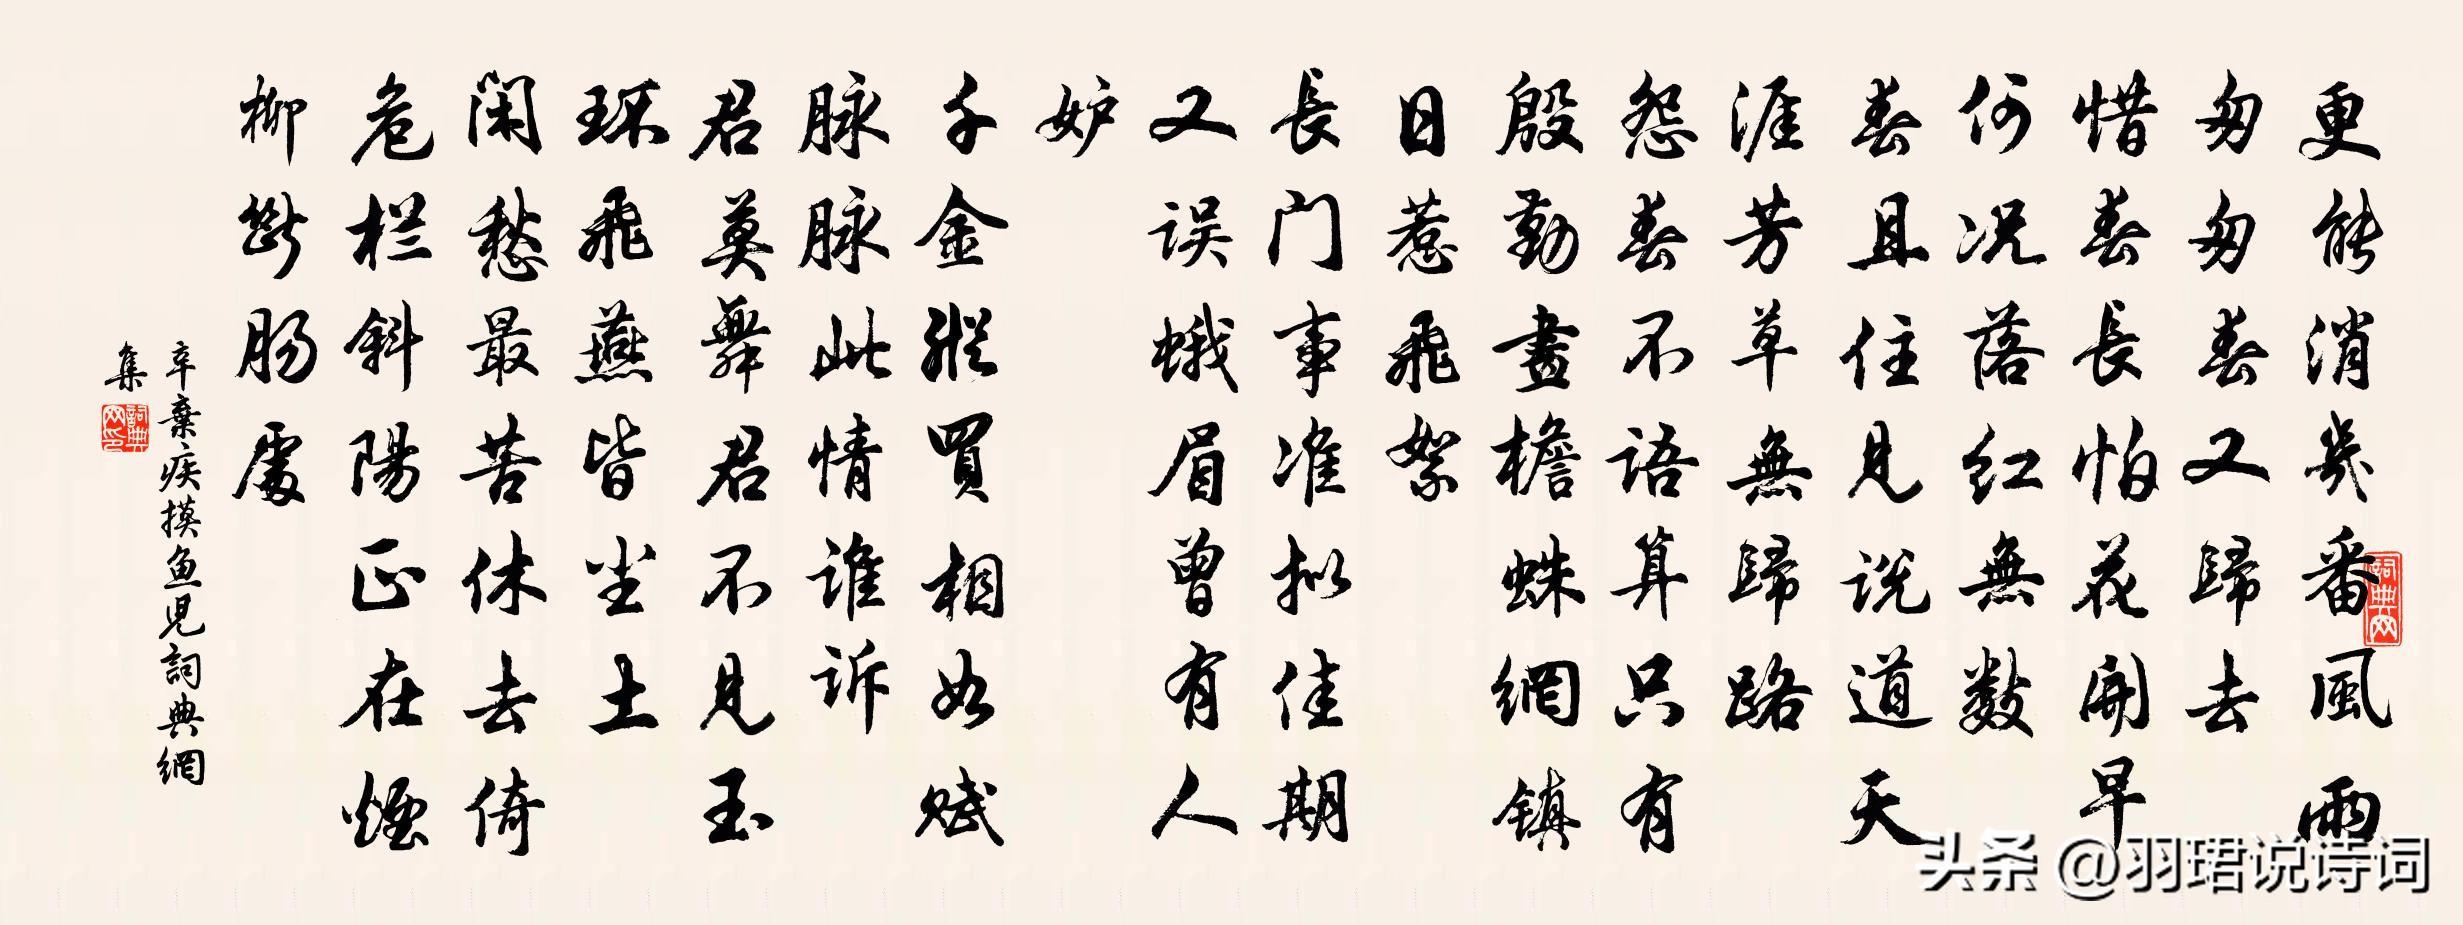 更能消幾番風雨
匆匆春又歸去
惜春長怕花開早
何况落红無数
春且住見说道天
涯芳草無歸路
怨春不语算只有
殷勤畫檐蛛網镇
日惹飛絮
長门事准拟佳期
又误蛾眉曾有人
妒
千金縱買相如赋
脉脉此情谁诉
君莫舞君不見玉
环飛燕皆尘土
闲愁最苦休去倚
危栏斜陽正在煙
柳斷肠處
辛棄疾摸魚児詞典網
集
詞典网印
詞典网
头条 @羽珺说诗词